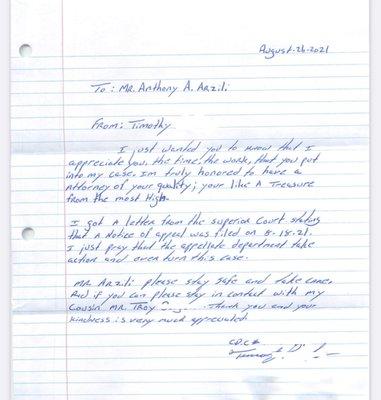 August-26-2021
To: MR. Anthony A. Arzili
From: Timothy
I just wanted you to know that I
appreciate you, the time, the work, that you put
into my case. Im truly honored to have a
Attorney of your quality; your like A Treasure
from the most High.
I got A letter from the superior Court stating
that A Notice of appeal was filed on 8-18-21.
I just pray that the appellate department take
action and over turn this case.
MR. Arzili please stay safe and take care.
And if you can please stay in contact with my
Cousin MR. TROY Thank you and your
kindness is very much appreciated.